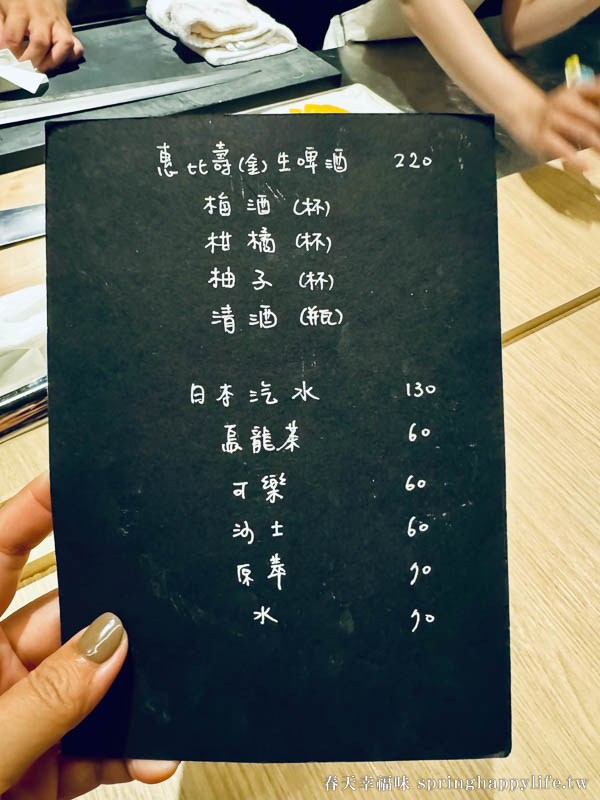 惠比壽(金)生啤酒 220
梅酒(杯)
柑橘(杯)
柚子(杯)
清酒(瓶)
日本汽水 130
烏龍茶 60
可樂 60
沙士 60
原萃 70
水 70
春天幸福味 springhappylife.tw